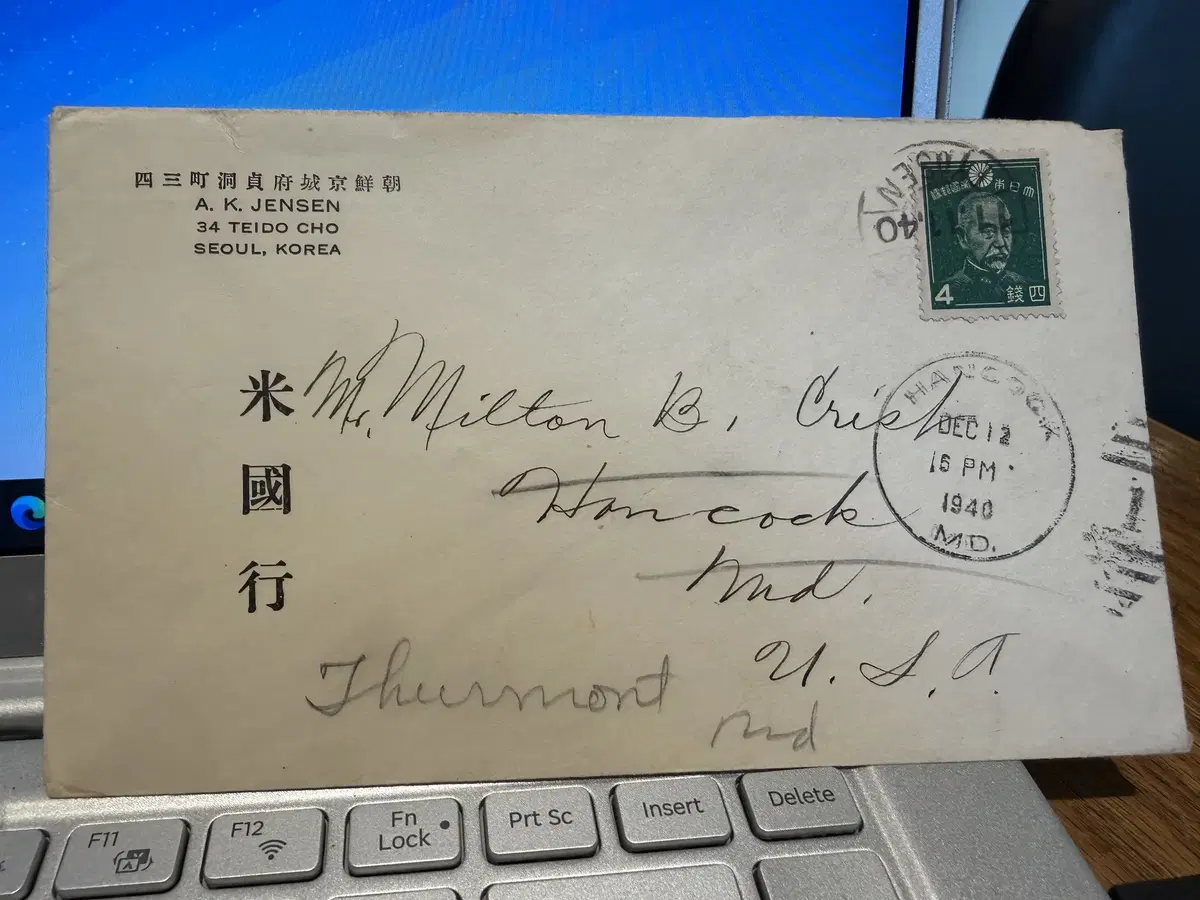 朝鮮京城府貞洞町三四
A. K. JENSEN
34 TEIDO CHO
SEOUL, KOREA
大日本帝國郵便
4
四錢
40
米國行
Mr. Milton B. Crist
Hancock
Md.
U. S. A.
Thurmont
Md
HANCOCK
DEC 12
16 PM
1940
MD.
F11
F12
Fn
Lock
Prt Sc
Insert
Delete